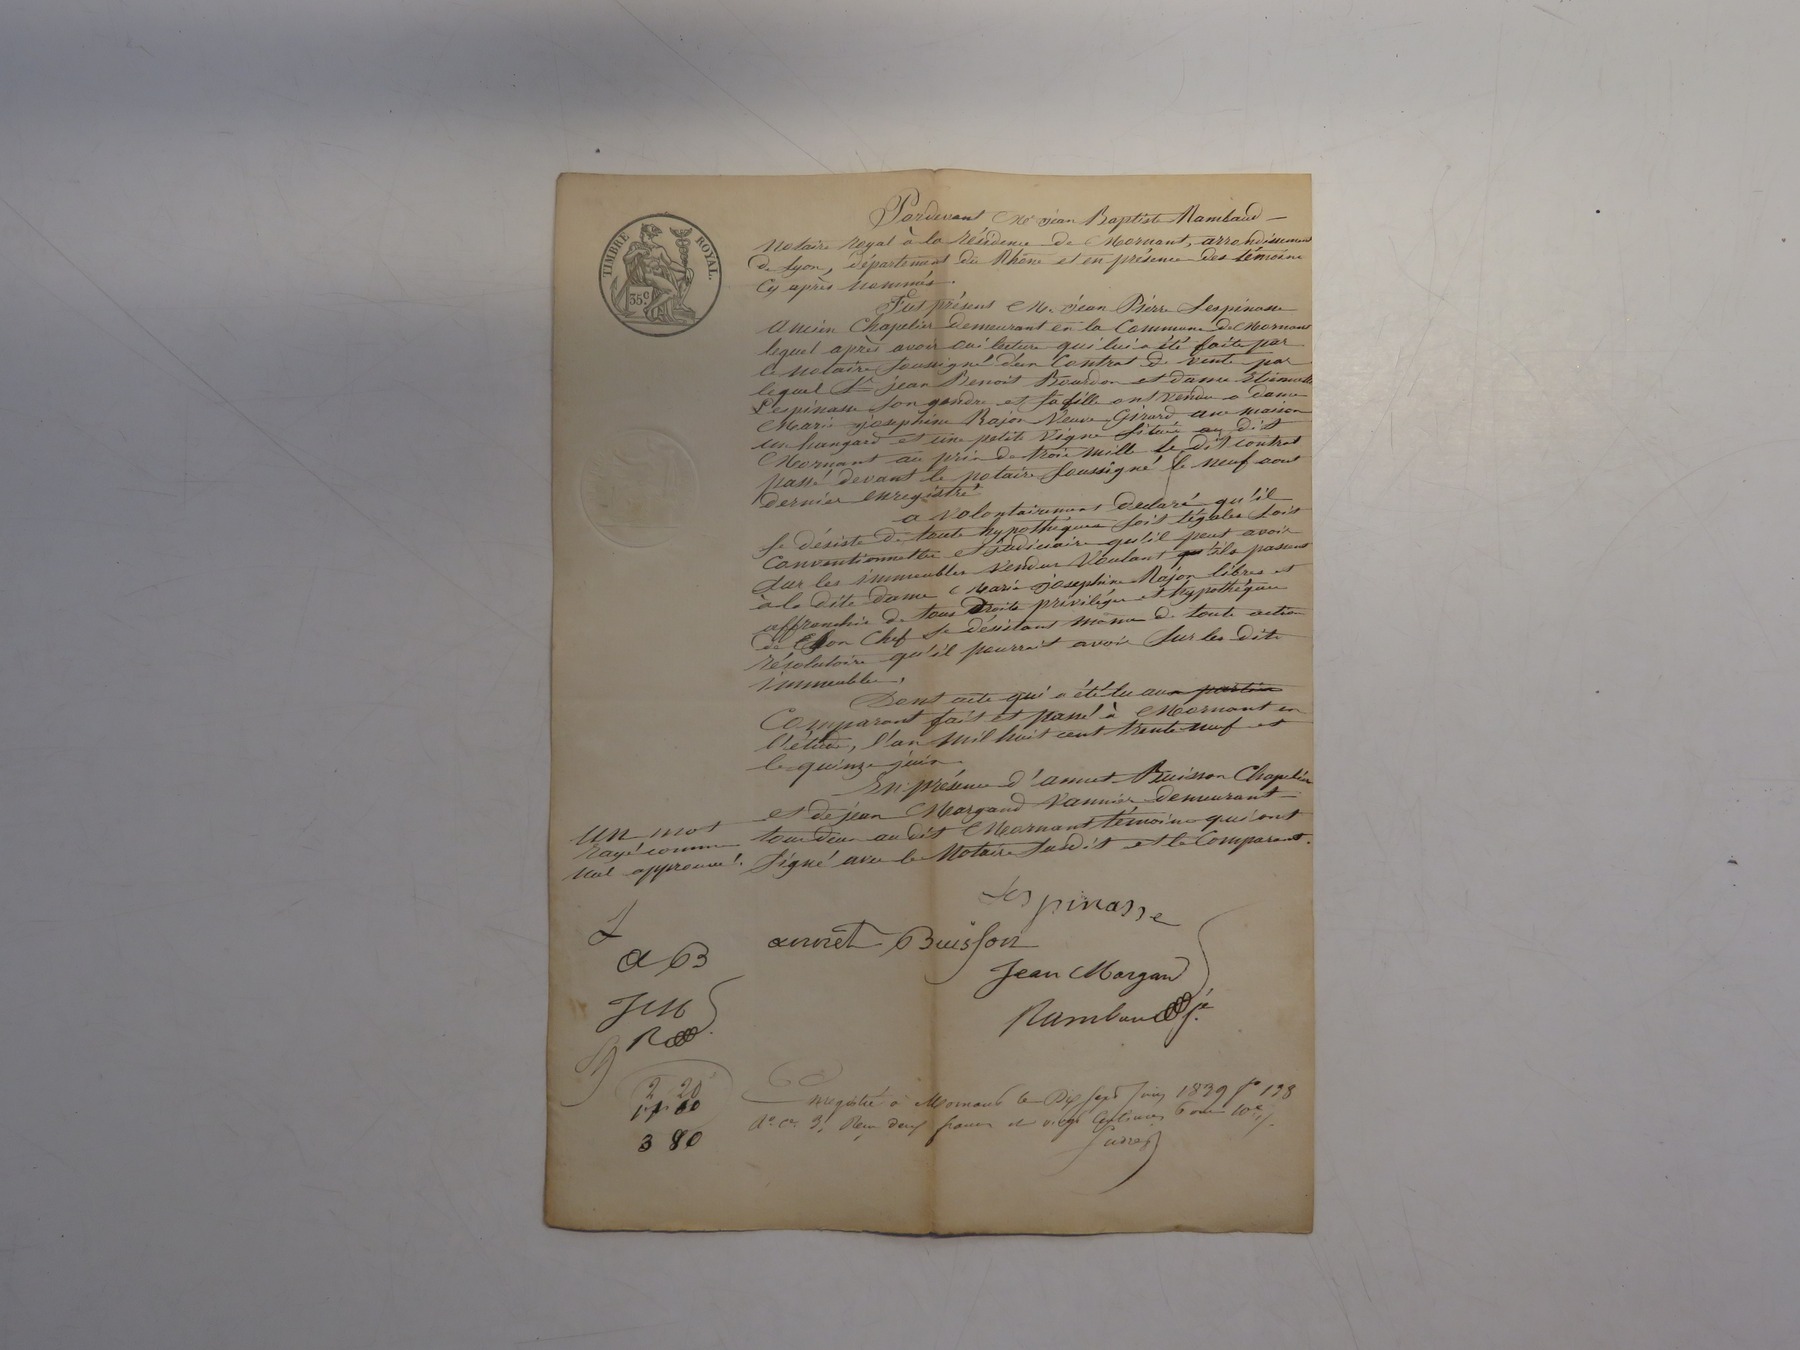 TIMBRE ROYAL.
35c
Pardevant Me jean Baptiste Rambaud
Notaire royal à la résidence de Mornant, arrondissement
de Lyon, département du Rhône et en présence des témoins
cy après nommés.
Fut présent M. jean Pierre Lespinasse
ancien Chapelier demeurant en la Commune de Mornant
lequel après avoir oui lecture qui lui a été faite par
le notaire soussigné d'un Contrat de vente par
lequel Sr jean Benoit Bourdon et dame Etiennette
Lespinasse son gendre et sa fille ont vendu a dame
Marie josephine Rajon Veuve Girard une maison
un hangard et une petite vigne située au dit
Mornant au prix de trois mille le dit contrat
passé devant le notaire soussigné le neuf aout
dernier enregistré
a volontairement declaré qu'il
se désiste de toute hypothéques soit légales soit
Conventionnelles et judiciaire qu'il peut avoir
sur les immeubles vendus Voulant qu'ils passent
à la dite dame Marie josephine Rajon libres et
affranchis de tous Droits priviléges et hypothéques
de son Chef se désistant même de toute action
résolutoire qu'il pourrait avoir sur les dits
immeubles.
Dont acte qui a été lu aux parties
Comparant fait et passé à Mornant en
l'étude, l'an mil huit cent trente neuf et
le quinze juin.
En présence d'annet Buisson Chapelier
et de jean Morgand Vannier demeurant
tous deux au dit Mornant témoins qui ont
signé avec le Notaire susdit et le Comparant.
Un mot
rayé comme
nul approuvé.
Lespinasse
annet Buisson
Jean Morgand
Rambaud
L
a B
J M
R
2 20
1 60
3 80
Enregistré à Mornant le Dix sept juin 1839 fo 138
Ro Ce 3. Reçu deux francs et vingt Centimes